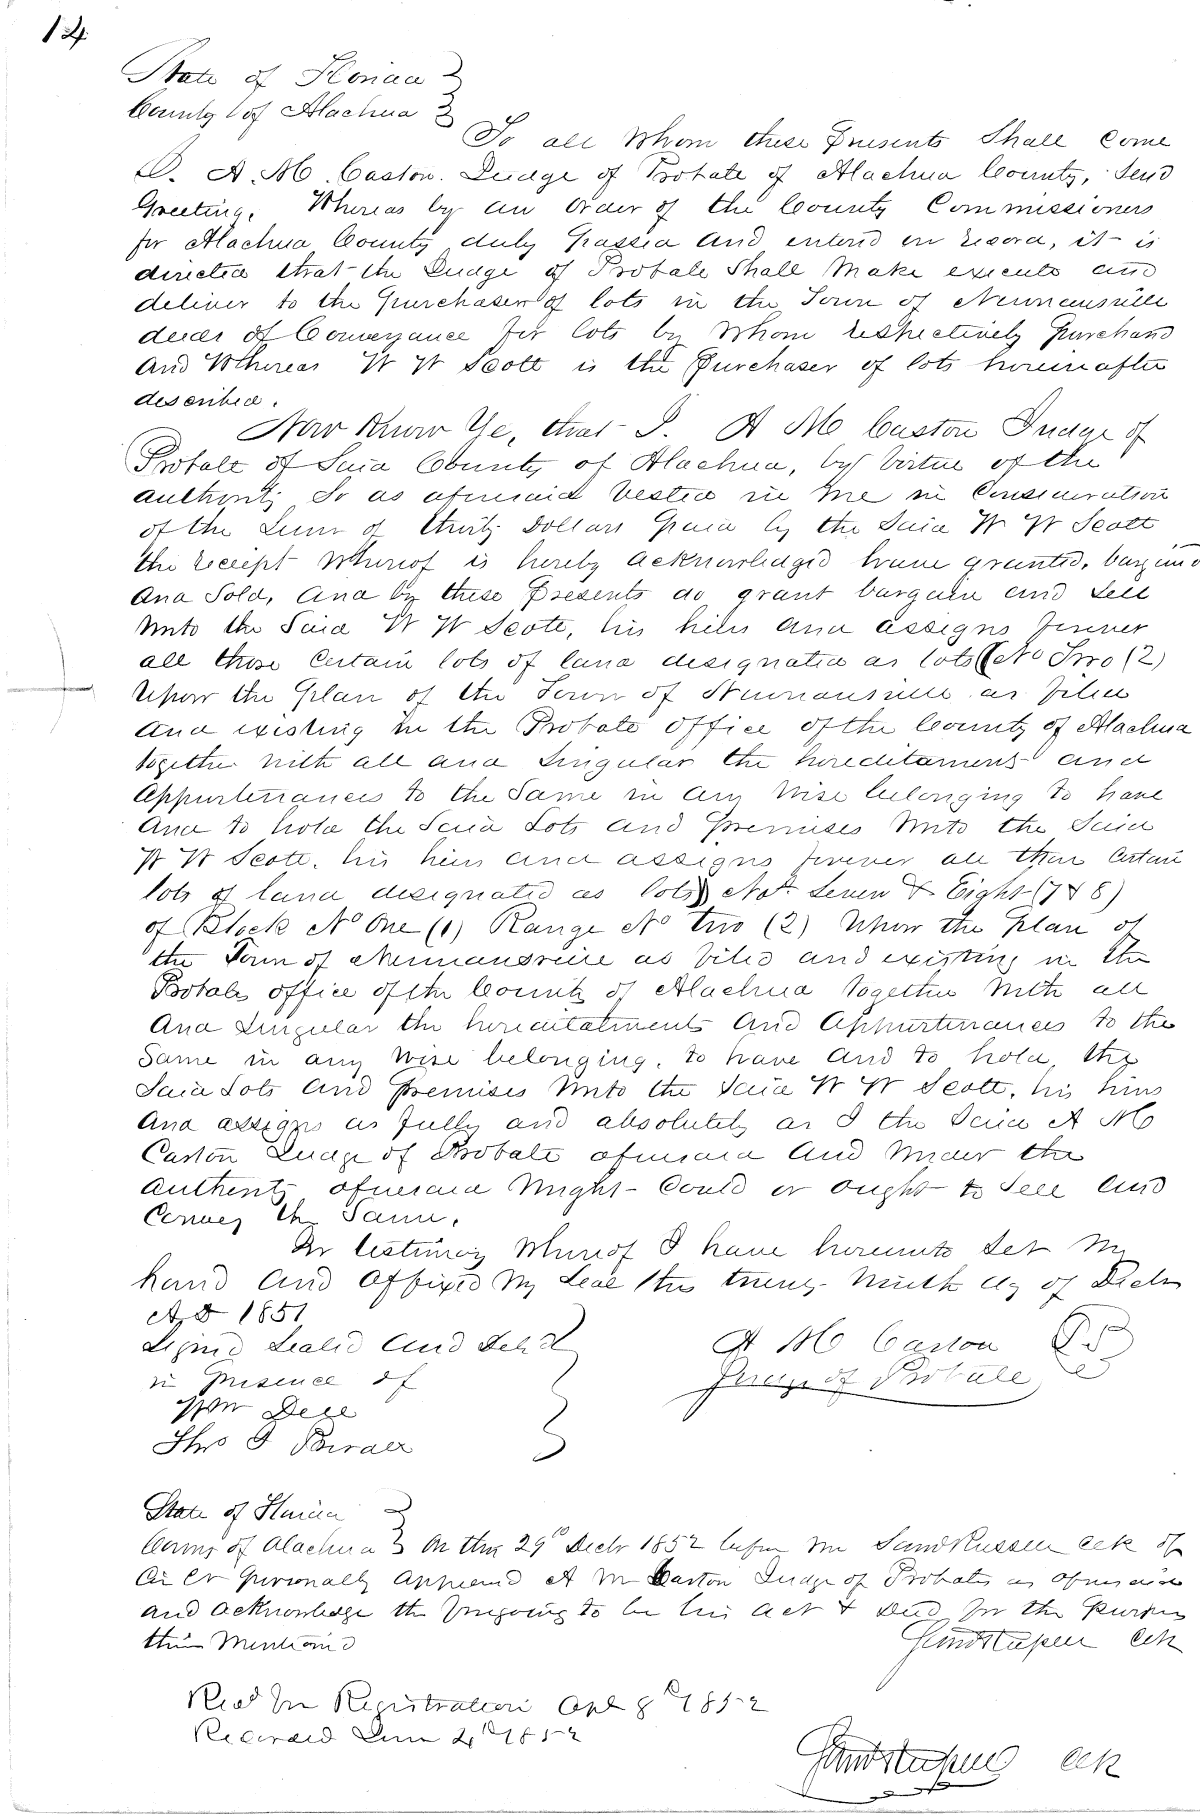 14
State of Florida
County of Alachua
To all Whom these Presents Shall Come
I. A. M. Caston. Judge of Probate of Alachua County, Send
Greeting, Whereas by an order of the County Commissioners
for Alachua County duly passed and entered on record, it is
directed that the Judge of Probate Shall Make execute and
deliver to the purchaser of lots in the Town of Newnansville
deeds of Conveyance for lots by Whom respectively purchased
and Whereas W W Scott is the purchaser of lots hereinafter
described.
Now Know Ye, that I. A M Caston Judge of
Probate of Said County of Alachua, by Virtue of the
authority So as aforesaid Vested in me in Consideration
of the Sum of thirty Dollars paid by the Said W W Scott
the receipt Whereof is hereby acknowledged have granted, bargaind
and Sold, and by these presents do grant bargain and Sell
Unto the Said W W Scott, his heirs and assigns forever
all those Certain lots of land designated as lots (No Two (2)
Upon the plan of the Town of Newnansville as filed
and existing in the Probate office of the County of Alachua
together with all and Singular the hereditaments and
appurtenances to the Same in any wise belonging to have
and to hold the Said Lots and premises Unto the Said
W W Scott. his heirs and assigns forever all those Certain
lots of land designated as lots Nos Seven & Eight (7 & 8)
of Block No One (1) Range No two (2) Upon the plan of
the Town of Newnansville as filed and existing in the
Probate office of the County of Alachua together with all
and Singular the hereditaments and appurtenances to the
Same in any wise belonging. to have and to hold, the
Said Lots and premises Unto the Said W W Scott, his heirs
and assigns as fully and absolutely as I the Said A M
Caston Judge of Probate aforesaid and Under the
authority aforesaid Might Could or ought to Sell and
Convey the Same.
In testimony Whereof I have hereunto Set My
hand and affixed My Seal this twenty Ninth dy of Decbr
A D 1851
Signd Sealed and Deld
in presence of
Wm Dell
A M Caston LS
Judge of Probate
State of Florida
County of Alachua On this 29th Decbr 1852 before me Saml Russell Clk of
Ci Ct personally appeared A M Caston Judge of Probate as aforesaid
and acknowledge the foregoing to be his act & Deed for the purposes
therin Mentioned
Saml Russell Clk
Recd for Registration Apl 8th 1852
Recorded June 4th 1852
Saml Russell Clk